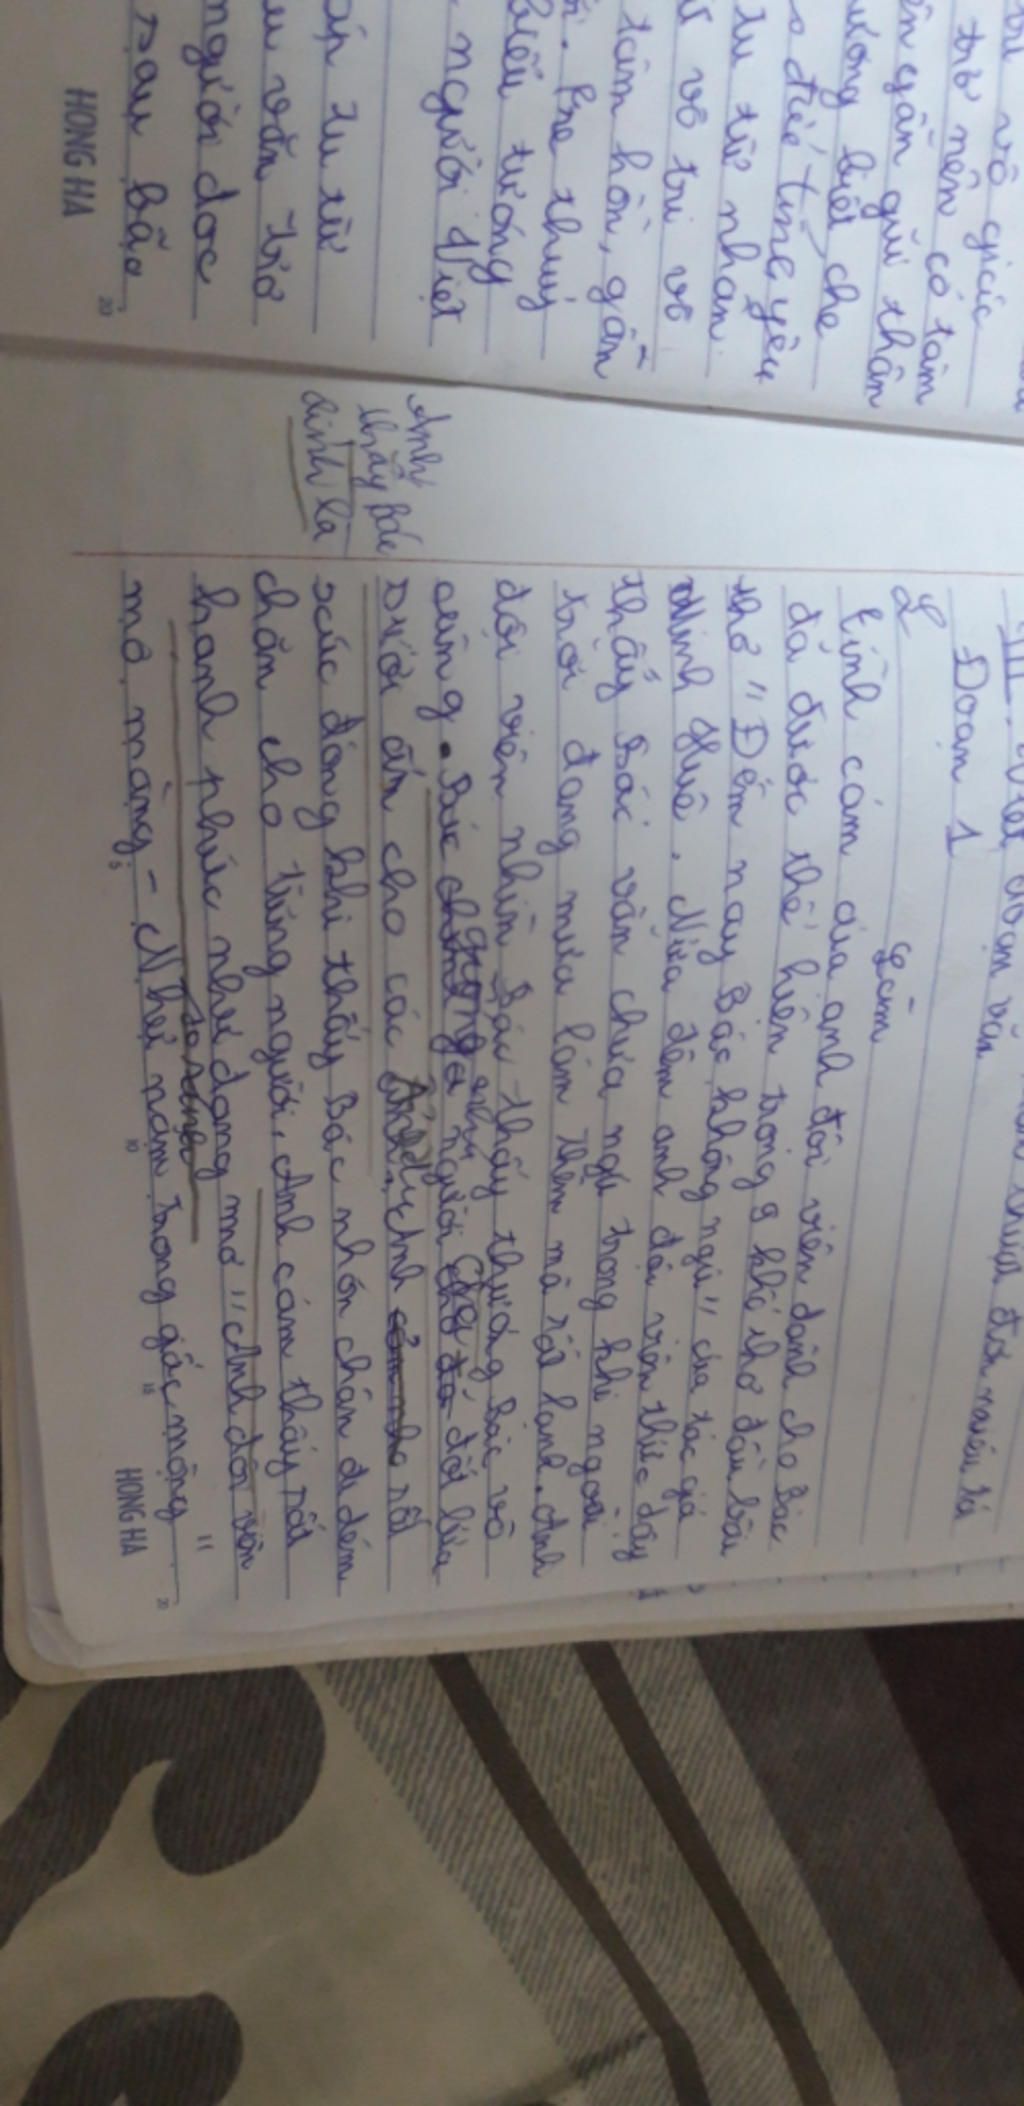 vô giác
trở nên có tâm
gần gũi thân
tương biết che
tình yêu
từ nhân
vô tri vô
tâm hồn, gần
thuý
biểu tượng
người Việt
từ
văn trở
người đọc
sau bão
HONG HA
20
III. Viết đoạn văn
Đoạn 1
Làm
Tình cảm của anh đội viên dành cho Bác
đã được thể hiện trong 9 khổ thơ đầu bài
thơ " Đêm nay Bác không ngủ" của tác giả
Minh Huệ. Nửa đêm anh đội viên thức dậy
thấy Bác vẫn chưa ngủ trong khi ngoài
trời đang mưa lâm thâm mà rất lạnh. Anh
đội viên nhìn Bác thấy thương Bác vô
cùng. Bác như người cha đốt lửa
sưởi ấm cho các Anh rất
xúc động khi thấy Bác nhón chân đi dém
chăn cho từng người. Anh cảm thấy rất
hạnh phúc như đang mơ " Anh đội viên
mơ màng - Như nằm trong giấc mộng "
Anh
thấy Bác
chính là
so sánh
5
10
15
HONG HA
20